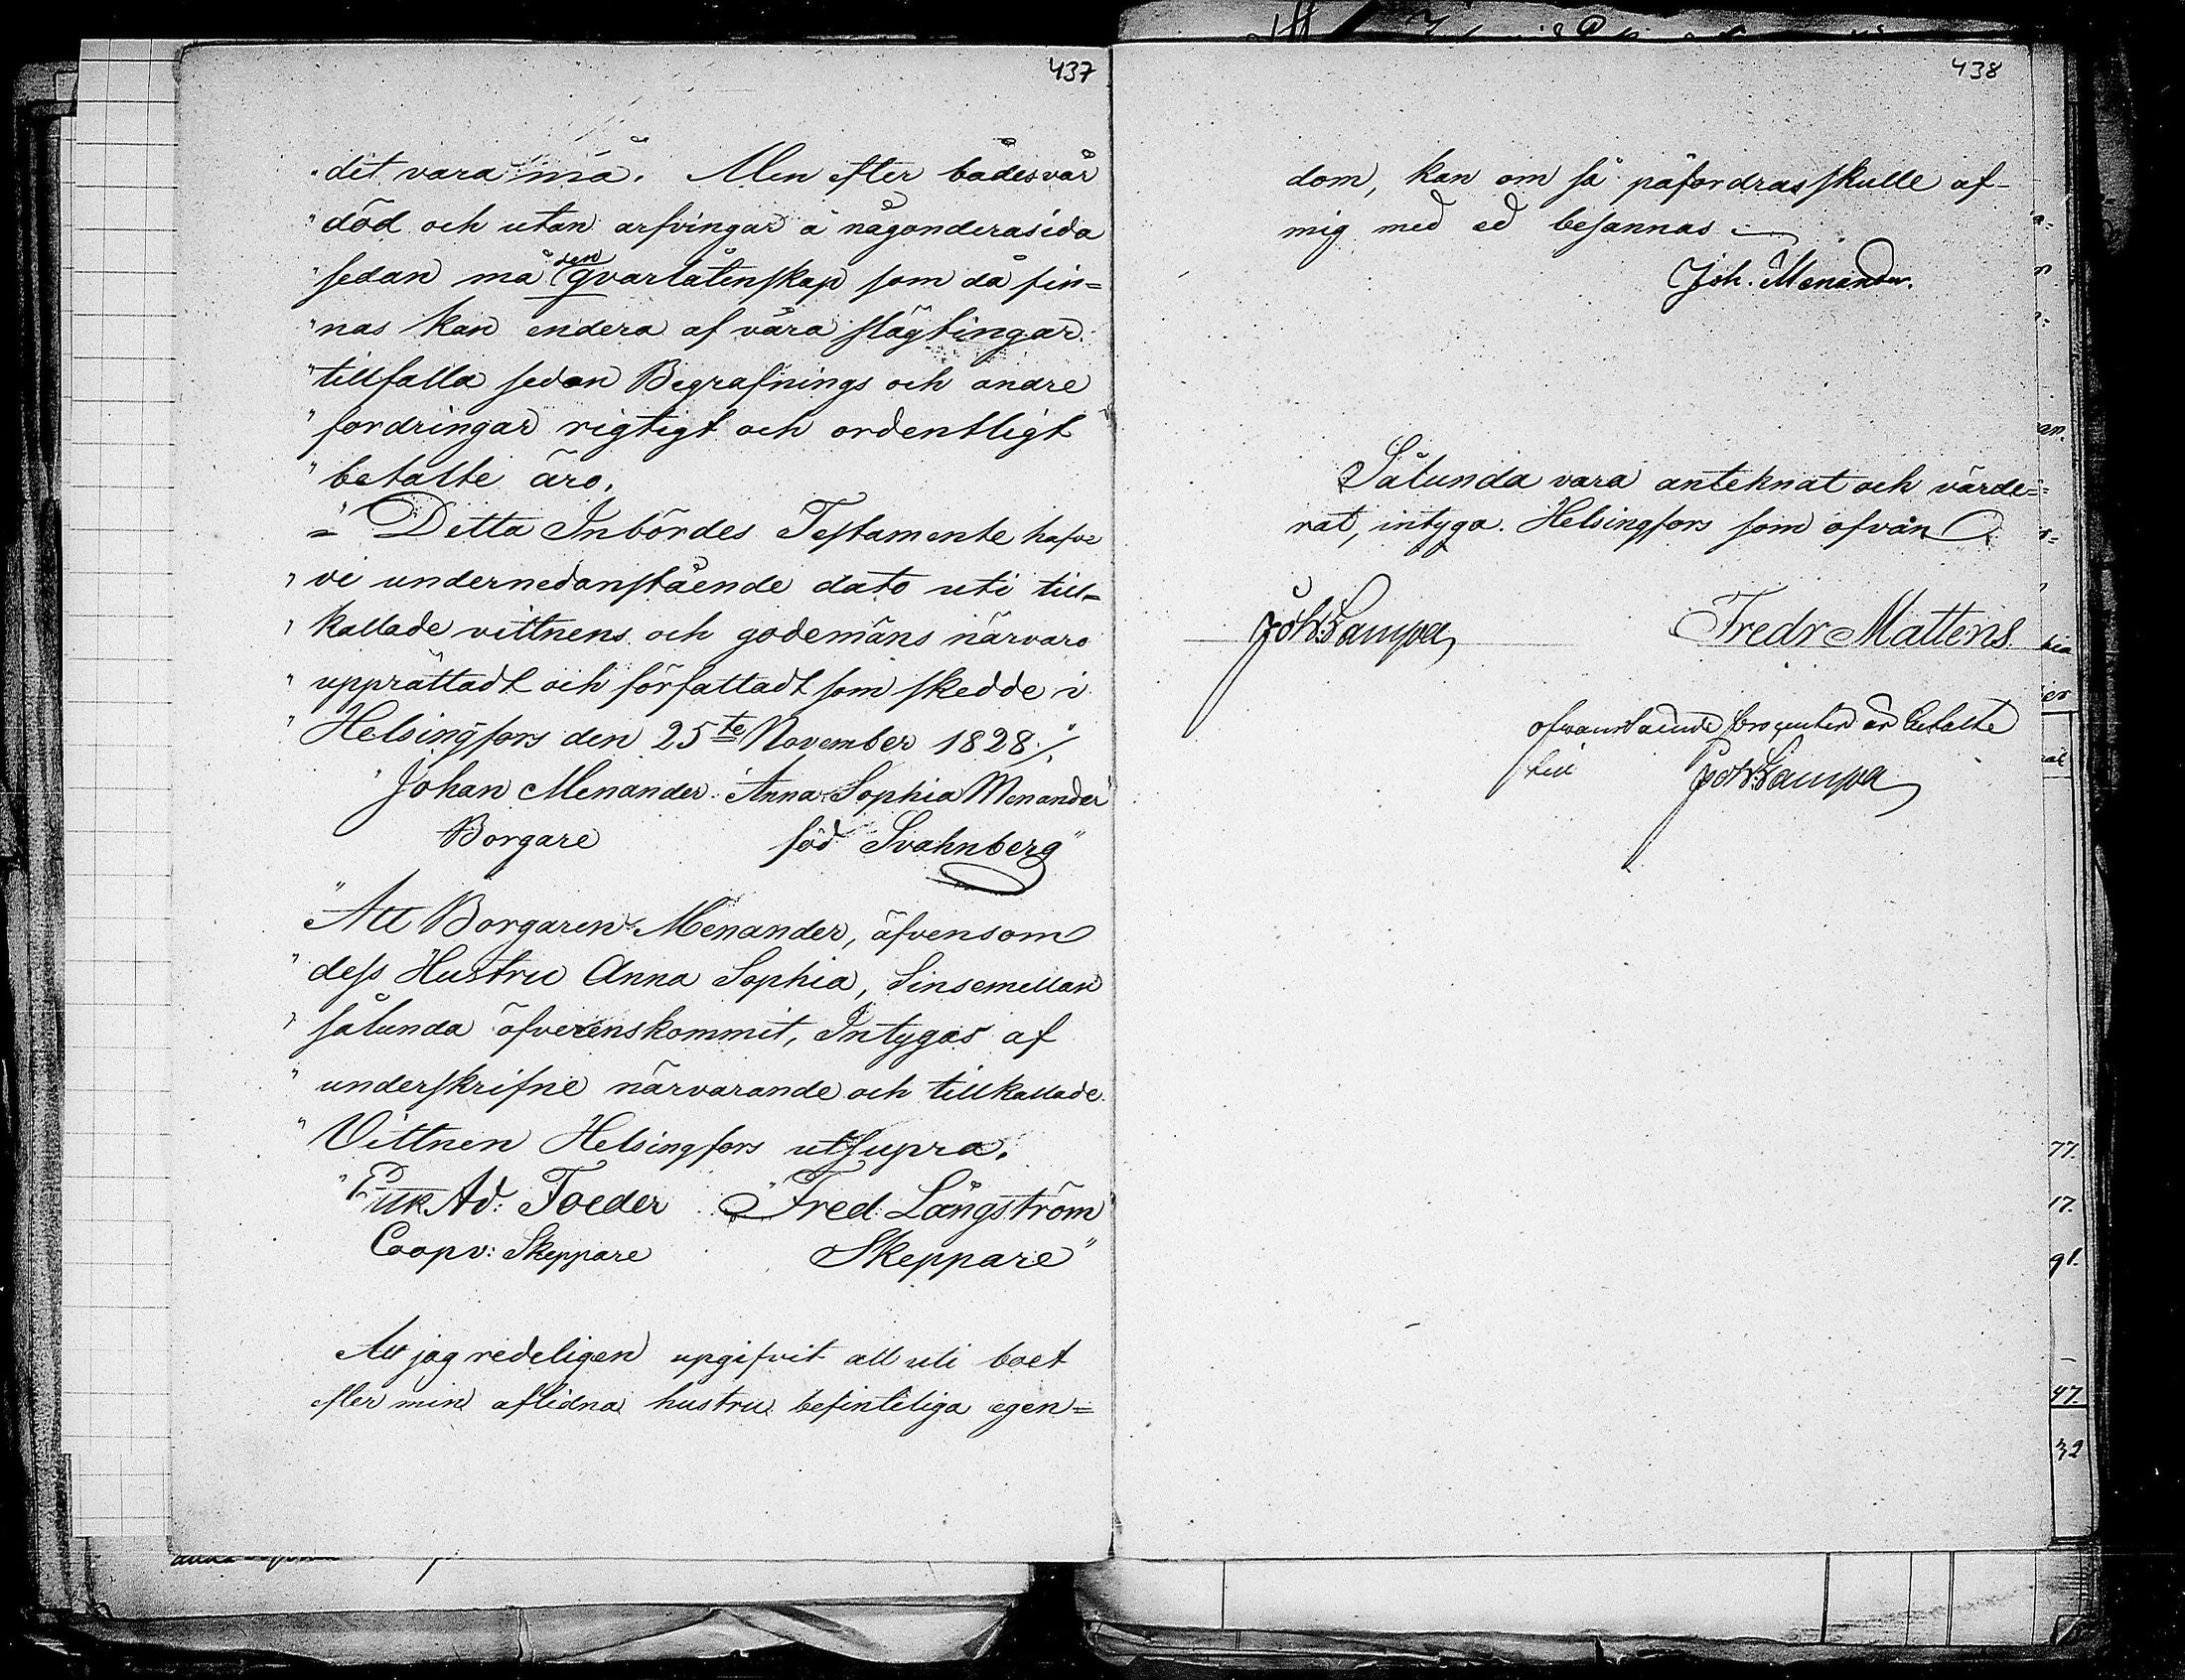 437
"det vara må. Men efter bådes vår
"död och utan arfvingar å någondera sida
"sedan må den qvarlåtenskap som då fin=
"nas kan endera af våra slägtingar
"tillfalla sedan Begrafnings och andre
"fordringar rigtigt och ordentligt
"betalte äro.
"= Detta Inbördes Testamente hafve
"vi undernedanstående dato uti till=
"kallade vittnens och godemäns närvaro
"upprättadt och författadt som skedde i
"Helsingfors den 25te November 1828 ./.
"Johan Menander. Anna Sophia Menander
Borgare född Svahnberg"
"Att Borgaren Menander, äfvensom
"dess Hustru Anna Sophia, Sinsemellan
"sålunda öfverenskommit, Intygas af
"underskrifne närvarande och tillkallade
"Vittnen Helsingfors utsupra.
"Erik Ad: Toeder "Fred Långström
Coopv: Skeppare Skeppare"
Att jag redeligen upgifvit all uti boet
efter min aflidna hustru befinteliga egen=
438
dom, kan om så påfordras skulle af
mig med ed besannas
Joh. Menander.
Sålunda vara anteknat och värde=
rat, intyga. Helsingfors som ofvan
Fredr Mattens
ofvanstående procenter är betalte
till
77.
17.
91.
47.
32